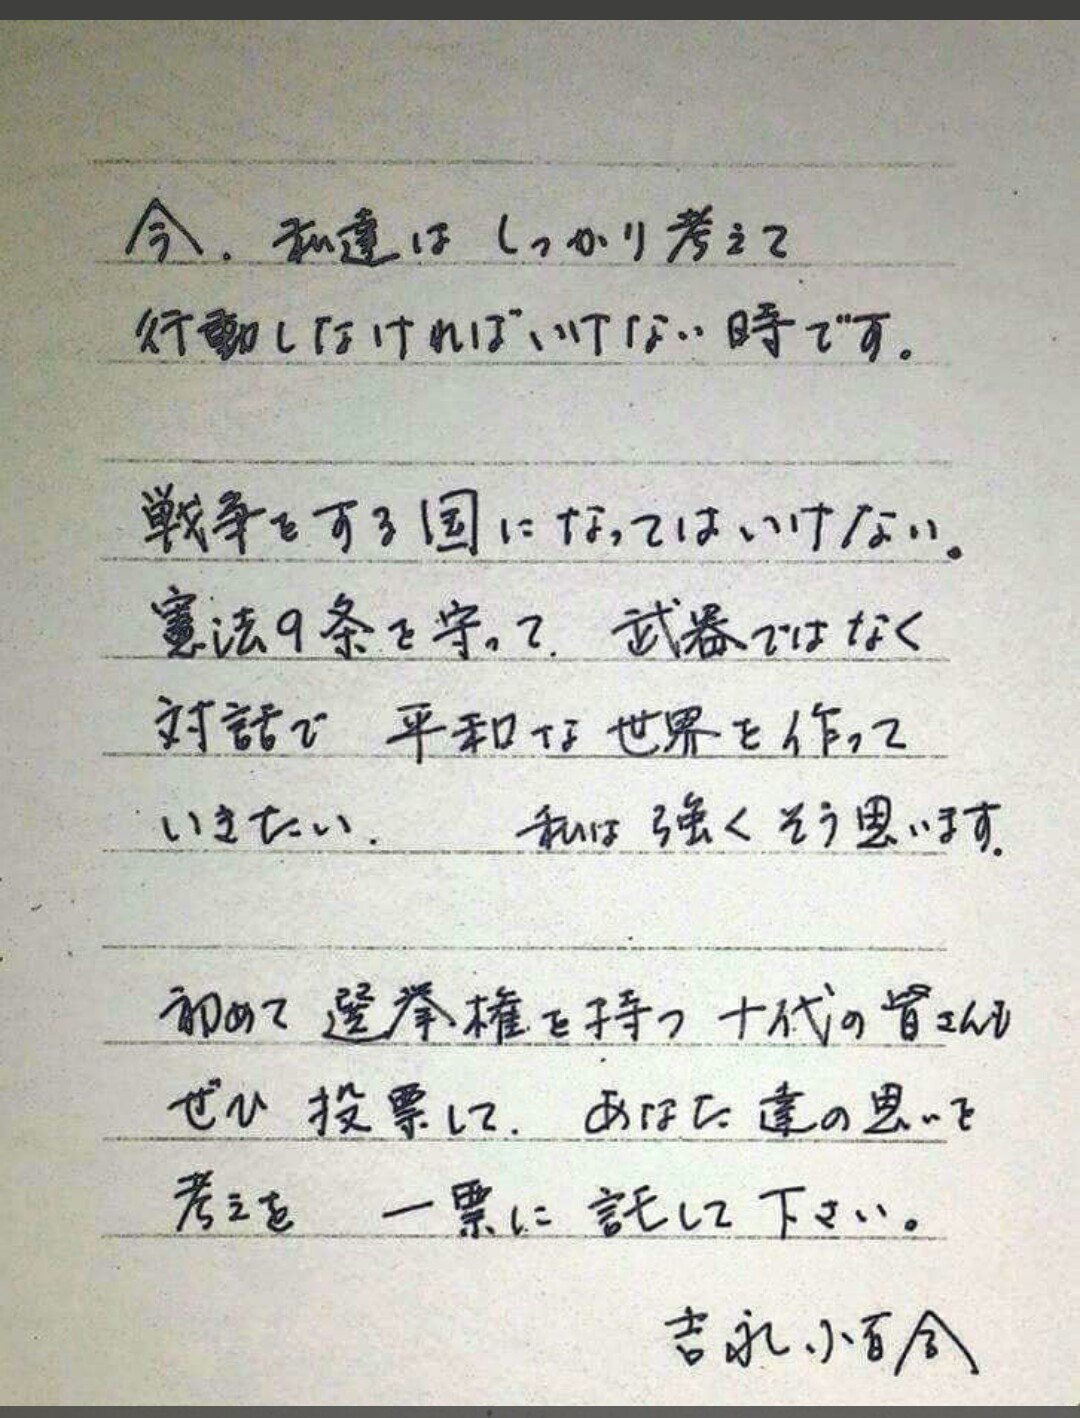 今、私達はしっかり考えて
行動しなければいけない時です。
戦争をする国になってはいけない。
憲法9条を守って、武器ではなく
対話で 平和な世界を作って
いきたい、 私は強くそう思います。
初めて選挙権を持つ十代の皆さんも
ぜひ投票して、あなた達の思いと
考えを 一票に託して下さい。
吉永小百合